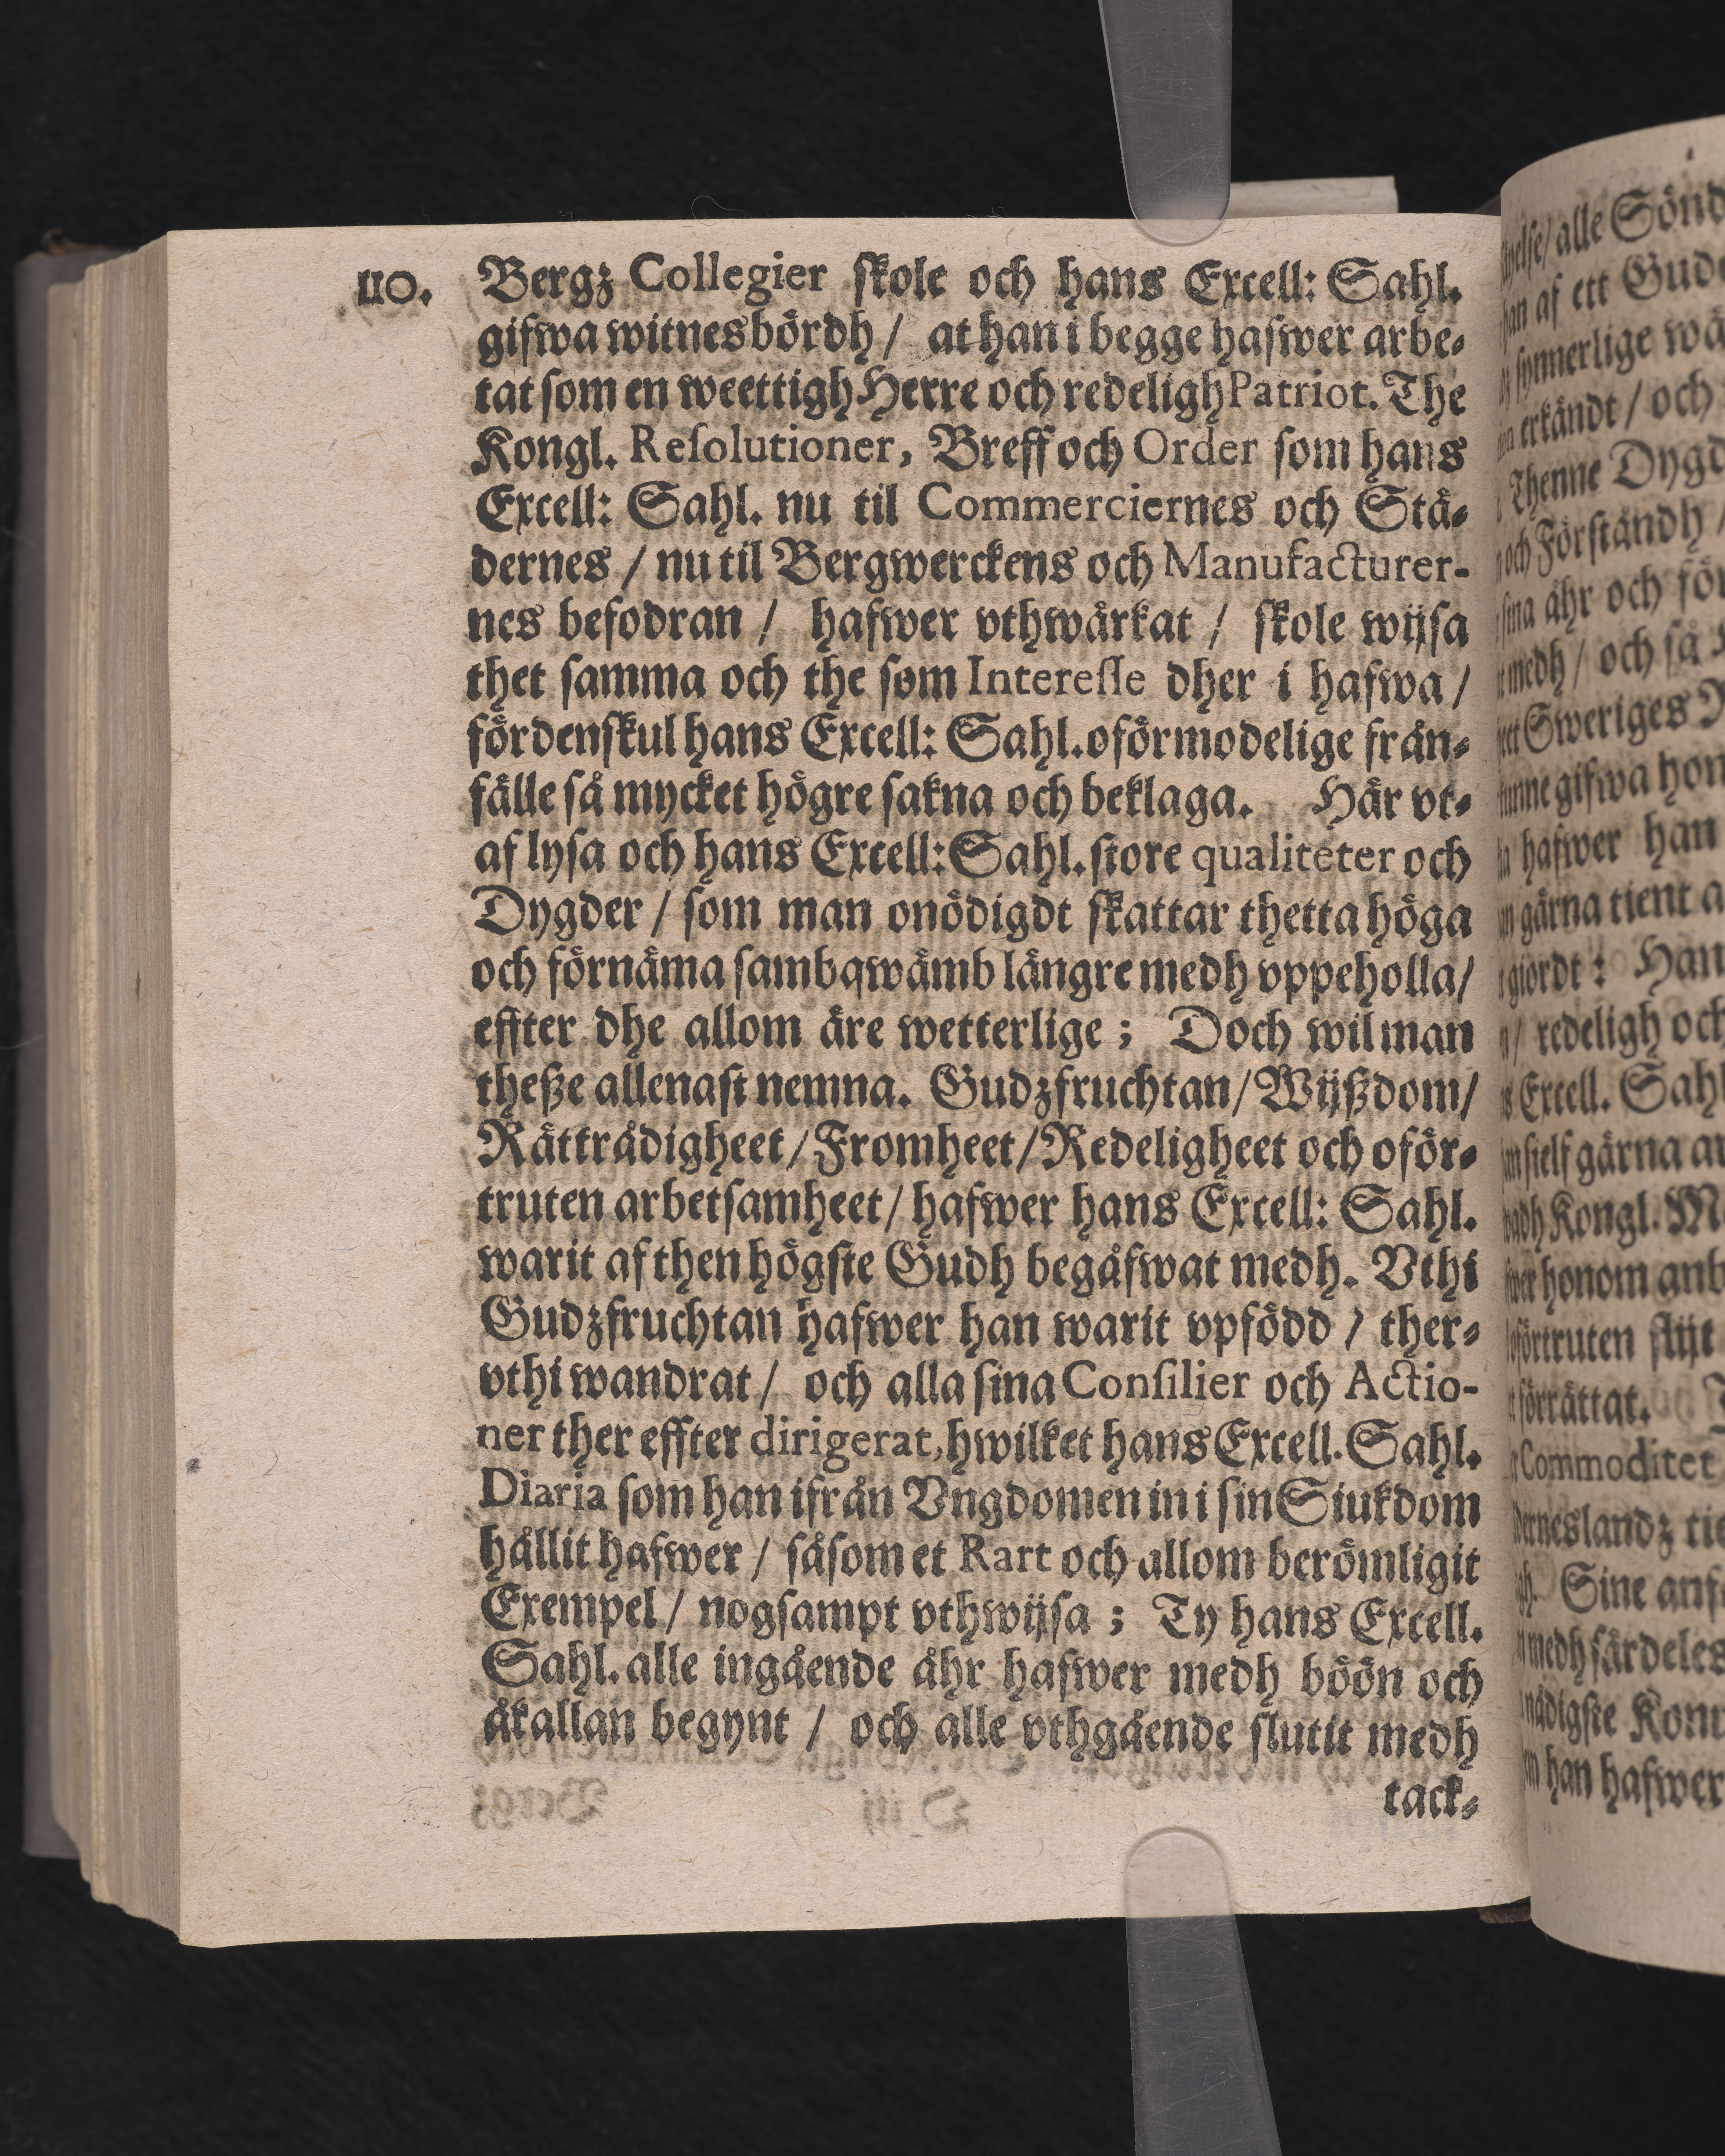 110.
Bergz Collegier ſkole och hans Excell: Sahl.
gifwa witnesbördh / at han i begge hafwer arbe-
tat ſom en weettigh Herre och redeligh Patriot. The
Kongl. Reſolutioner, Breff och Order ſom hans
Excell: Sahl. nu til Commerciernes och Stä-
dernes / nu til Bergwerckens och Manufacturer-
nes befodran / hafwer vthwärkat / ſkole wijſa
thet ſamma och the ſom Intereſſe dher i hafwa /
fördenſkul hans Excell: Sahl. oförmodelige från-
fälle så mycket högre ſakna och beklaga. Här vt-
af lyſa och hans Excell: Sahl. ſtore qualiteter och
Dygder / ſom man onödigdt ſkattar thetta höga
och förnäma ſambqwämb längre medh vppeholla /
effter dhe allom äre wetterlige ; Doch wil man
theße allenaſt nemna. Gudzfruchtan / Wijßdom /
Rättrådigheet / Fromheet / Redeligheet och oför-
truten arbetſamheet / hafwer hans Excell: Sahl.
warit af then högſte Gudh begåfwat medh. Vthi
Gudzfruchtan hafwer han warit vpfödd / ther-
vthi wandrat / och alla ſina Conſilier och Actio-
ner ther effter dirigerat, hwilket hans Excell. Sahl.
Diaria ſom han ifrån Vngdomen in i ſin Siukdom
hållit hafwer / såſom et Rart och allom berömligit
Exempel / nogſampt vthwijſa ; Ty hans Excell.
Sahl. alle ingående åhr hafwer medh böön och
åkallan begynt / och alle vthgående ſlutit medh
tack-
alle
af ett
och
Thenne
och Förſtåndh /
åhr och
medh / och ſå
Sweriges
gifwa
hafwer han
gärna tient
giordt : Han
redeligh och
Excell.
ſielf gärna
Kongl.
honom
förrättat.
Commoditet
Sine
medh ſärdeles
han hafwer